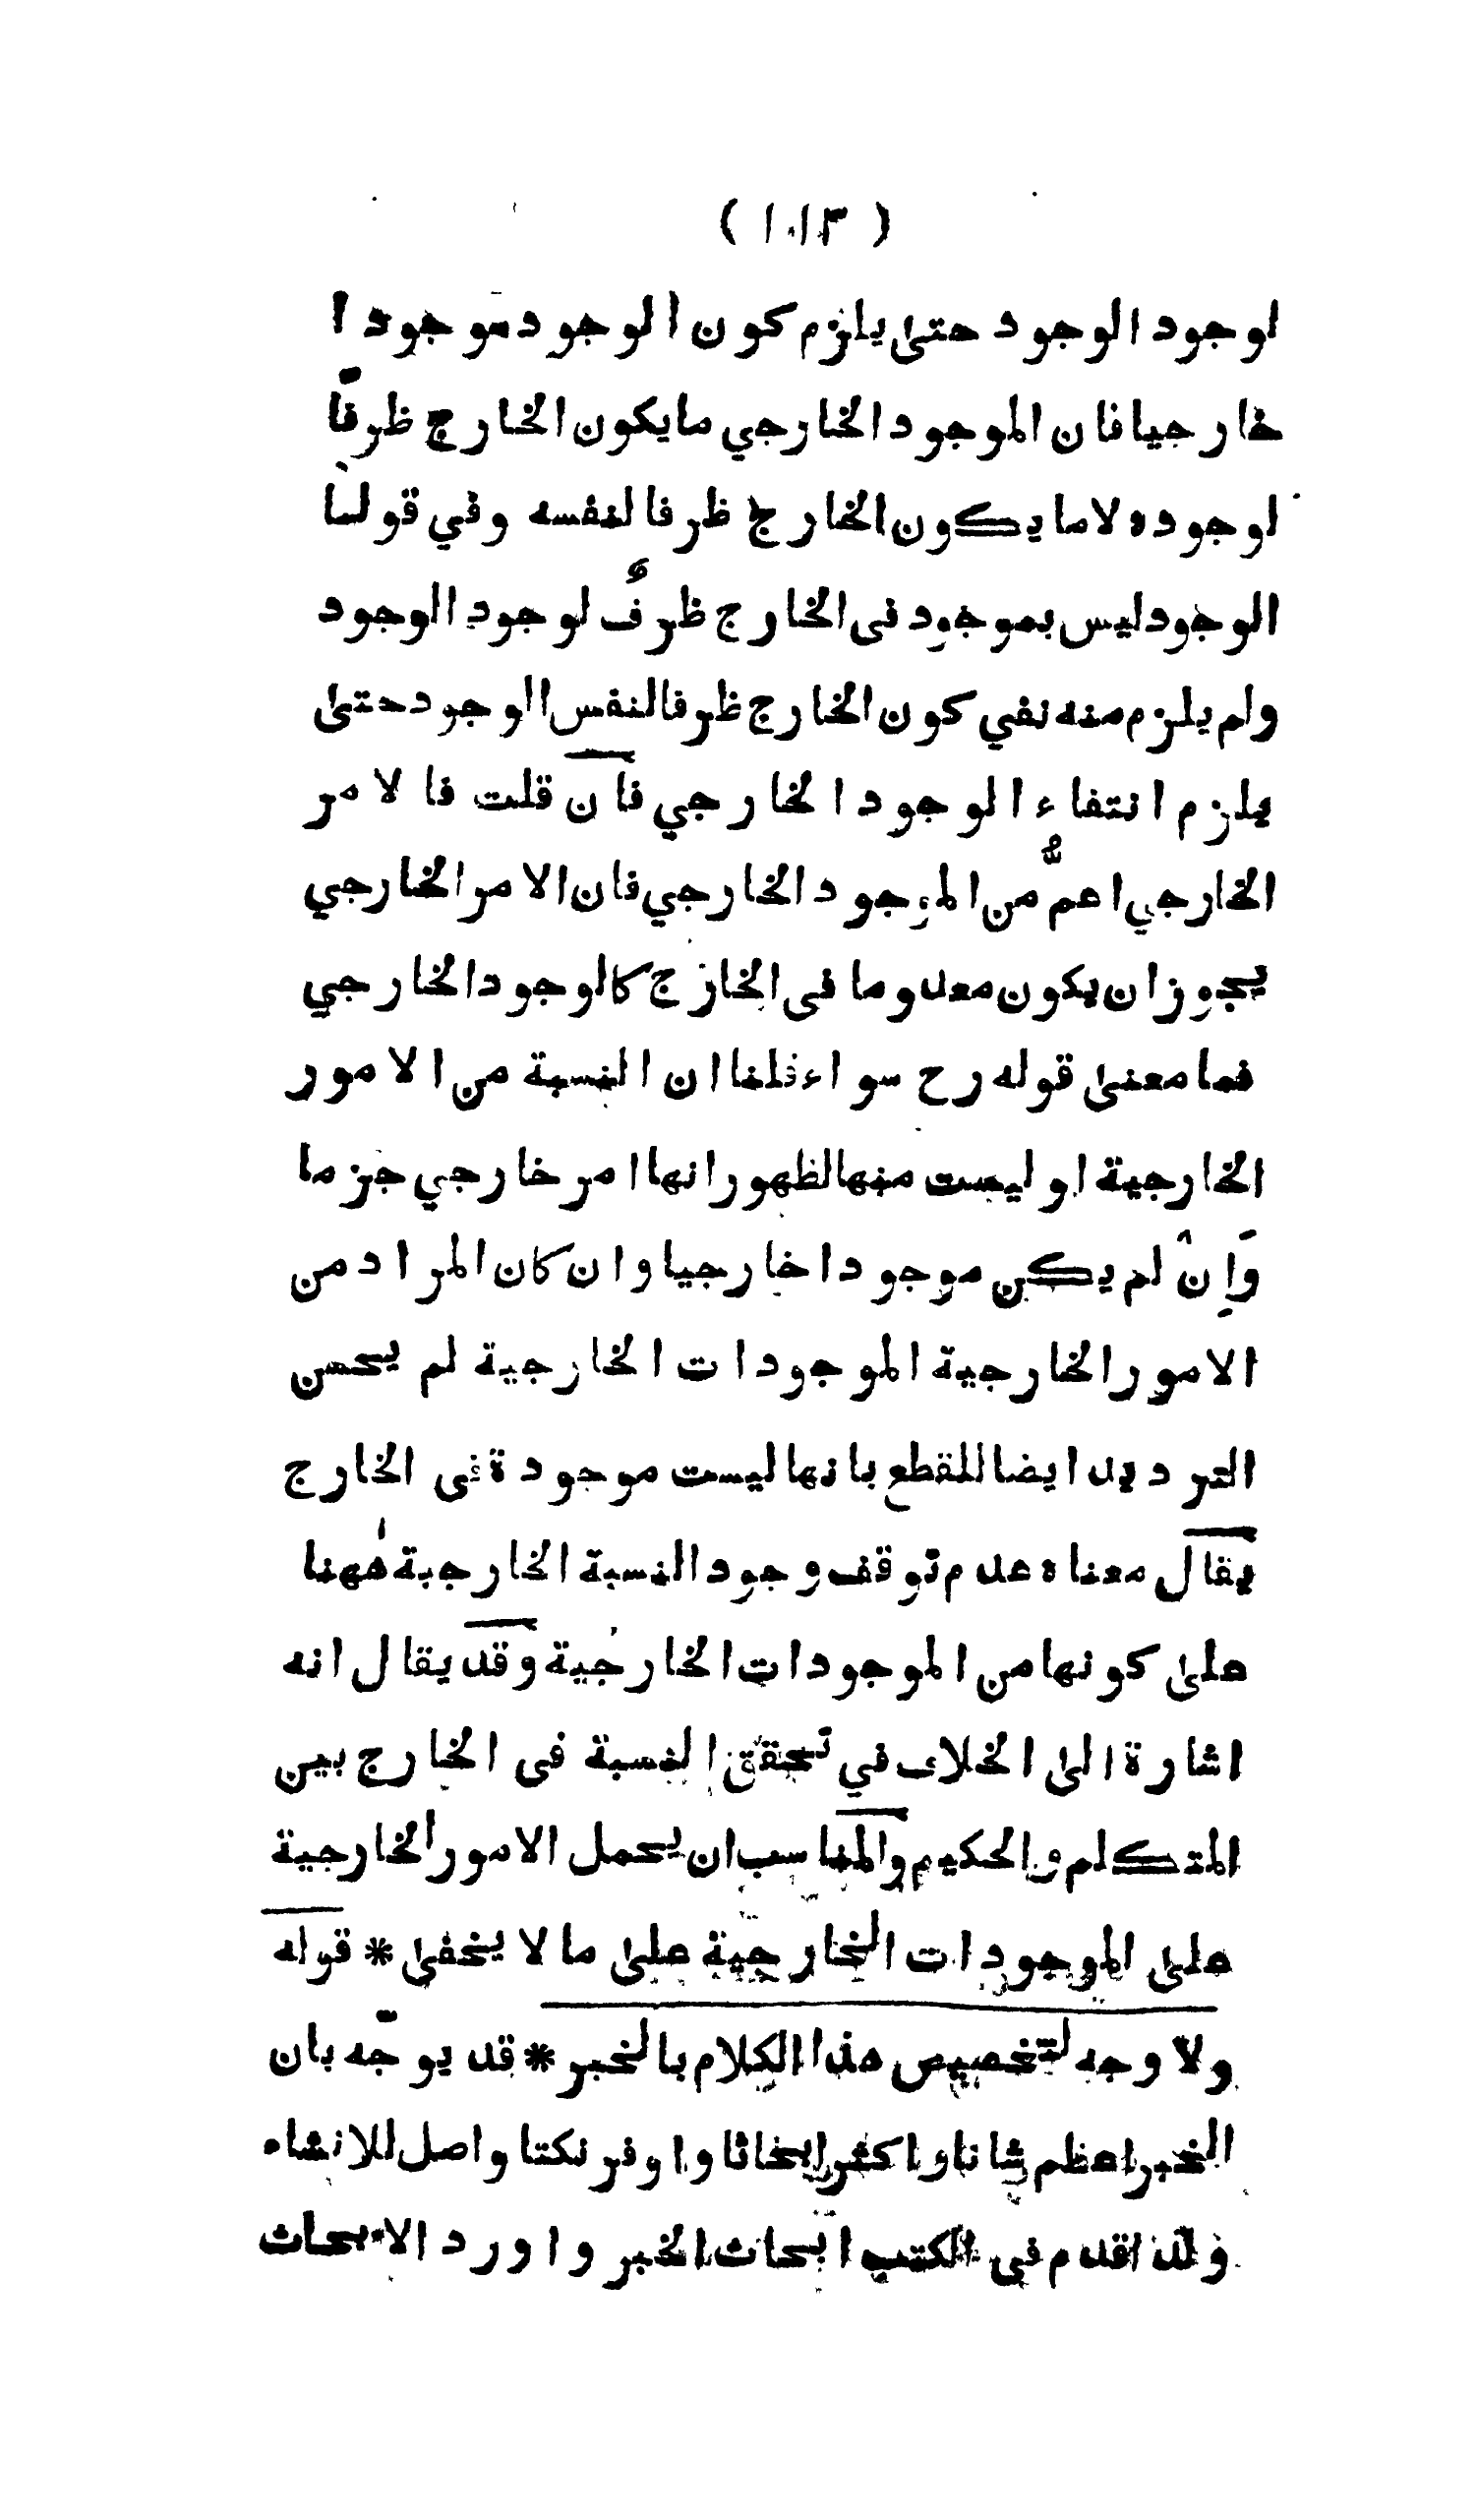 ( ١٠١٣ )
لوجود الوجود حتى يلزم كون الوجود موجودا
خارجيا فان الموجود الخارجي ما يكون الخارج ظرفًا
لوجوده لا ما يكون الخارج ظرفا لنفسه وفي قولنا
الوجود ليس بموجود فى الخارج ظرفٌ لوجود الوجود
ولم يلزم منه نفي كون الخارج ظرفا لنفس الوجود حتى
يلزم انتفاء الوجود الخارجي فان قلت فالامر
الخارجي اعمُّ من الموجود الخارجي فان الامر الخارجي
يجوز ان يكون معدوما فى الخارج كالوجود الخارجي
فما معنى قوله رح سواء قلنا ان النسبة من الامور
الخارجية او ليست منها لظهور انها امر خارجي جزما
وَاِنْ لم يكن موجودا خارجيا وان كان المراد من
الامور الخارجية الموجودات الخارجية لم يحسن
الترديد ايضا للقطع بانها ليست موجودة فى الخارج
يقال معناه عدم توقف وجود النسبة الخارجية هٰهنا
على كونها من الموجودات الخارجية وقد يقال انه
اشارة الى الخلاف في تحقق النسبة فى الخارج بين
المتكلم والحكيم والمناسب ان يحمل الامور الخارجية
على الموجودات الخارجية على ما لا يخفى * قوله
ولا وجه لتخصيص هذا الكلام بالخبر * قد يوجّه بان
الخبر اعظم شانا واكثر ابحاثا واوفر نكتا واصل للانشاء
ولذا قدم فى الكتب ابحاث الخبر واورد الابحاث